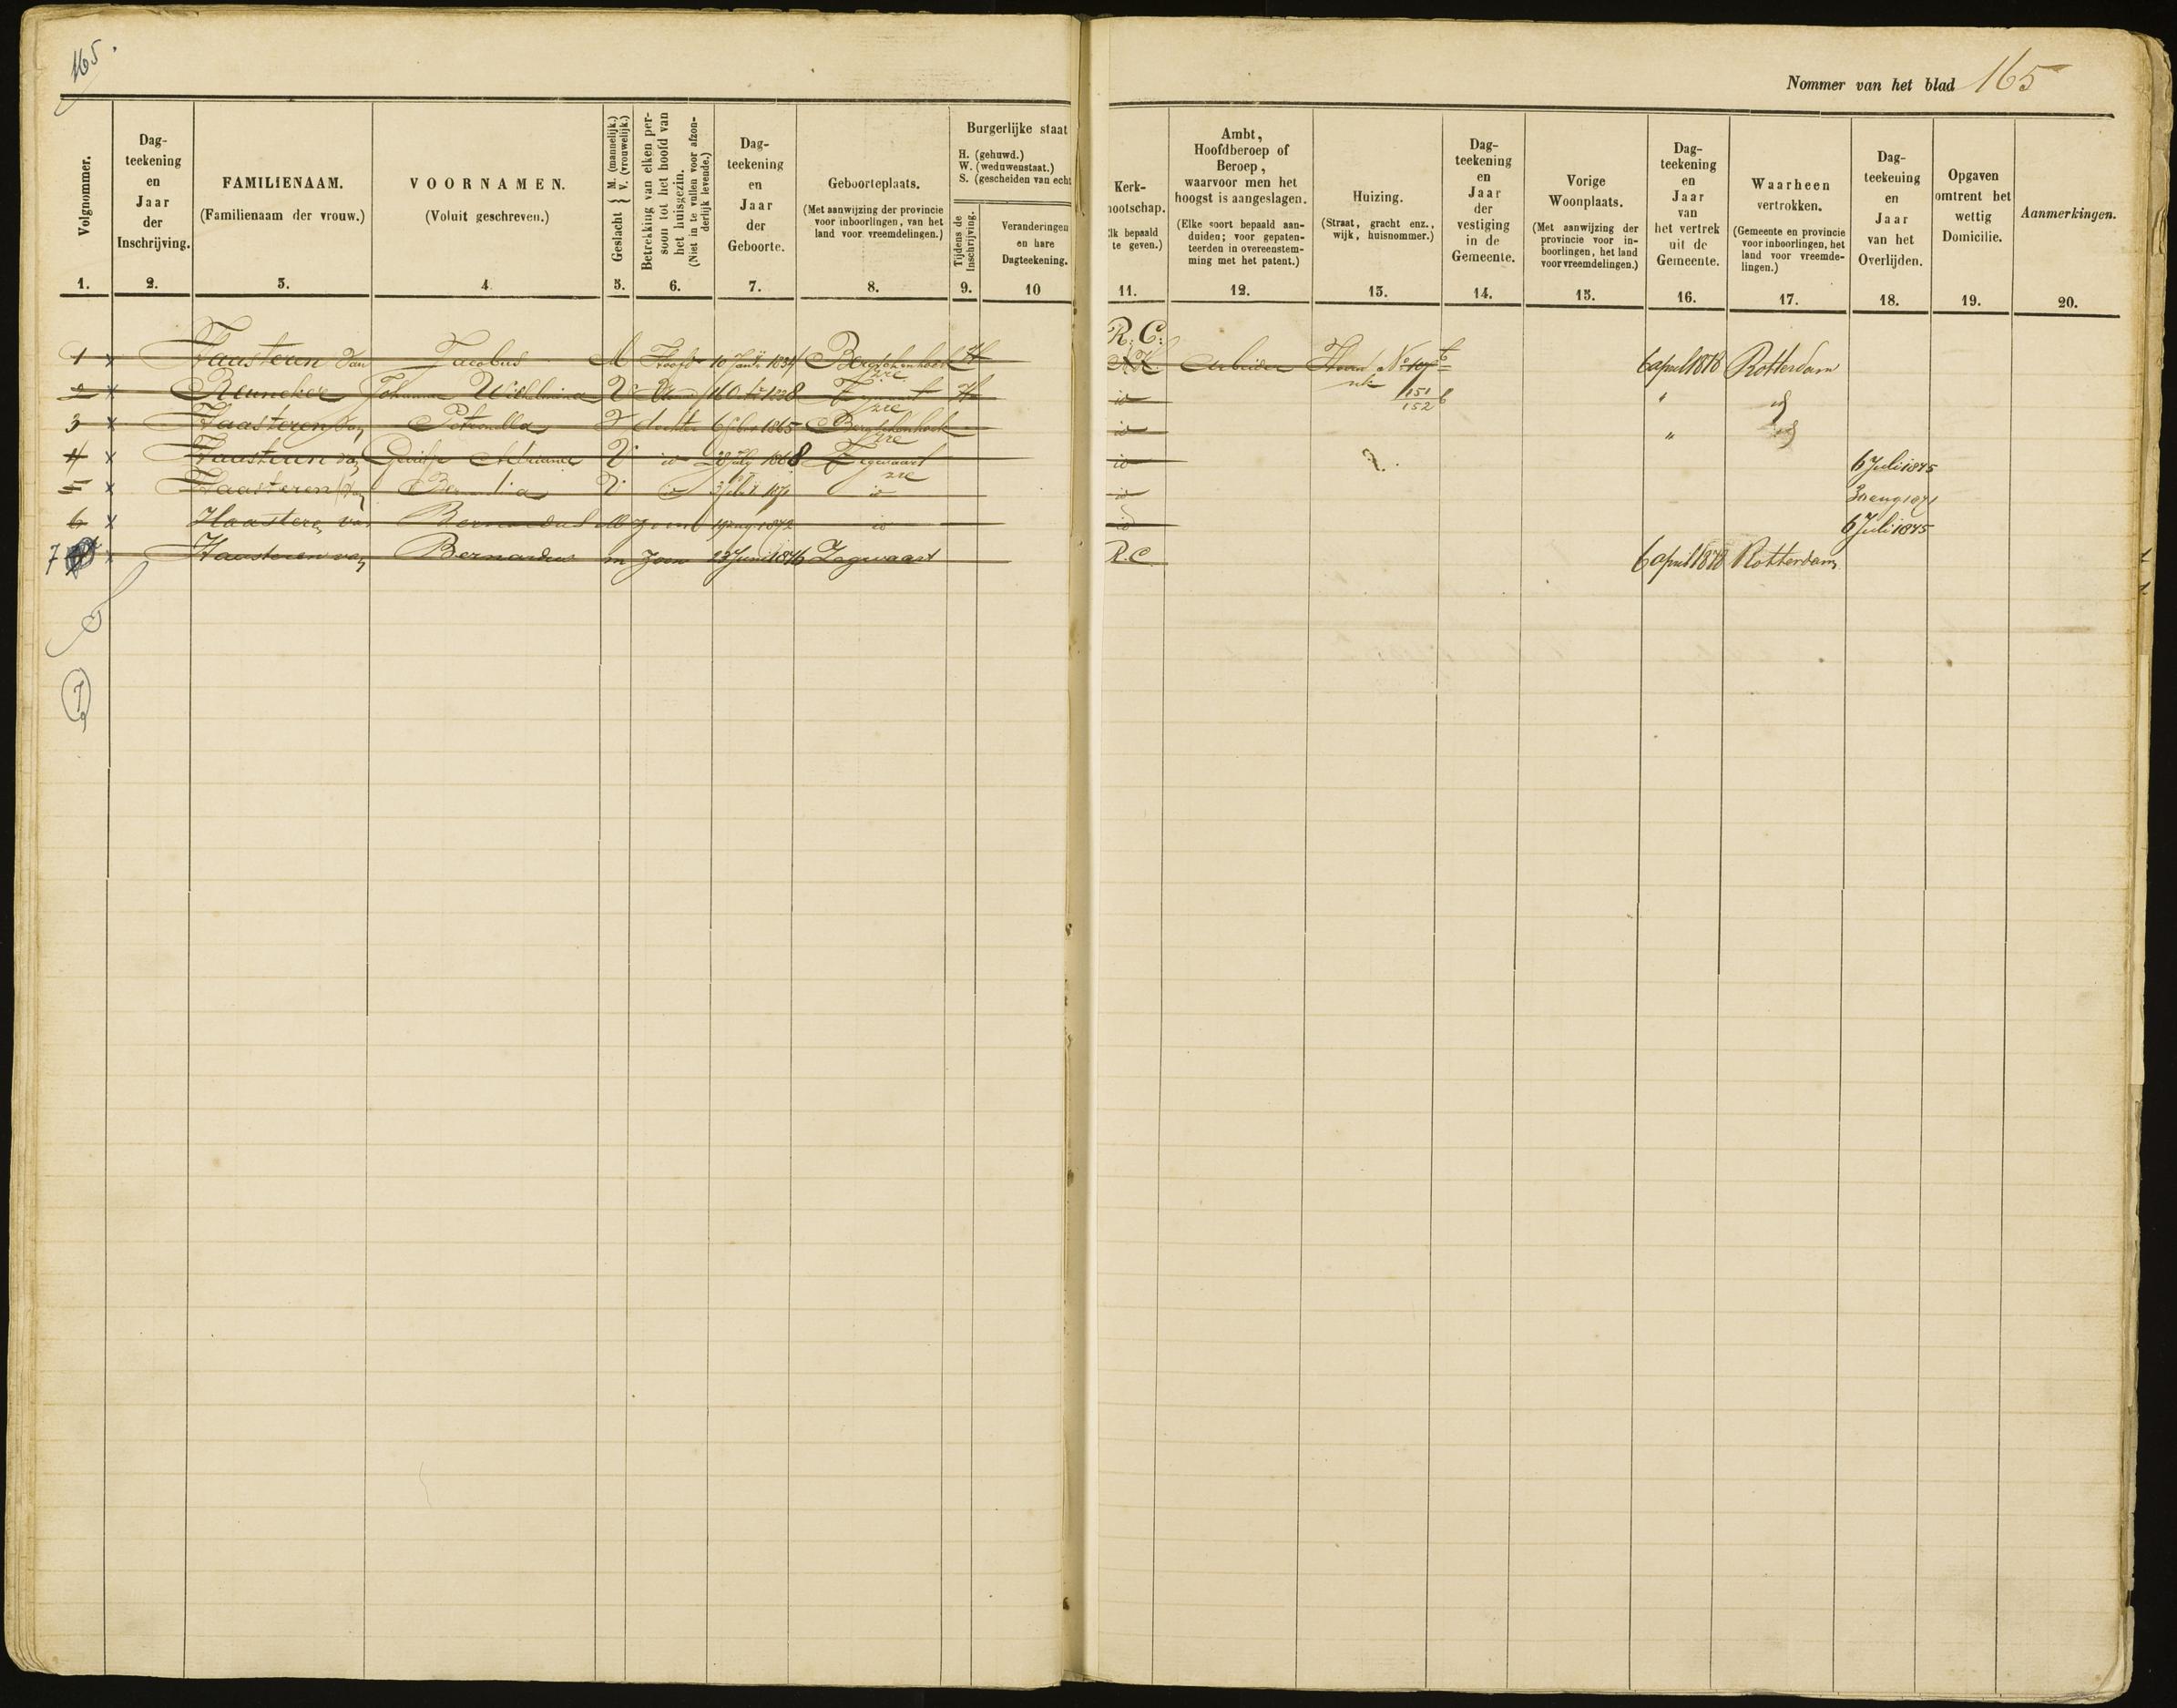 165.
Nommer van het blad 165
Volgnommer.
1.
Dag-
teekening
en
Jaar
der
Inschrijving.
2.
FAMILIENAAM.
(Familienaam der vrouw.)
3.
VOORNAMEN.
(Voluit geschreven.)
4
Geslacht { M. (mannelijk.)
V. (vrouwelijk.)
5.
Betrekking van elken per-
soon tot het hoofd van
het huisgezin.
(Niet in te vullen voor afzon-
derlijk levende.)
6.
Dag-
teekening
en
Jaar
der
Geboorte.
7.
Geboorteplaats.
(Met aanwijzing der provincie
voor inboorlingen, van het
land voor vreemdelingen.)
8.
Burgerlijke staat
H. (gehuwd.)
W. (weduwenstaat.)
S. (gescheiden van echt
Tijdens de
Inschrijving.
9.
Veranderingen
en hare
Dagteekening.
10
Kerk-
nootschap.
elk bepaald
te geven.)
11.
Ambt,
Hoofdberoep of
Beroep,
waarvoor men het
hoogst is aangeslagen.
(Elke soort bepaald aan-
duiden; voor gepaten-
teerden in overeenstem-
ming met het patent.)
12.
Huizing.
(Straat, gracht enz.,
wijk, huisnommer.)
13.
Dag-
teekening
en
Jaar
der
vestiging
in de
Gemeente.
14.
Vorige
Woonplaats.
(Met aanwijzing der
provincie voor in-
boorlingen, het land
voor vreemdelingen.)
15.
Dag-
teekening
en
Jaar
van
het vertrek
uit de
Gemeente.
16.
Waarheen
vertrokken.
(Gemeente en provincie
voor inboorlingen, het
land voor vreemde-
lingen.)
17.
Dag-
teekening
en
Jaar
van het
Overlijden.
18.
Opgaven
omtrent het
wettig
Domicilie.
19.
Aanmerkingen.
20.
R. C.
1 x Haasteren van Jacobus M Hoofd 10 Jan 1834 Bergschenhoek H Arbeider No 107 6 april 1878 Rotterdam
2 x Renneker Johanna Wilhelmina V 16 1838 H id 151 "
152
3 x Haasteren van Petronella V dochter 1865 Bergschenhoek id "
4 x Haasteren van Adriana V id 28 July 1868 Zegwaart id 6 Juli 1875
5 x Haasteren van V id id id 30 aug 1871
6 x Haasteren van Bernardus M zoon 1872 id id 6 Juli 1875
7 x Haasteren van Bernardus m zoon 23 Juni 1876 Zegwaart R.C 6 april 1878 Rotterdam
7